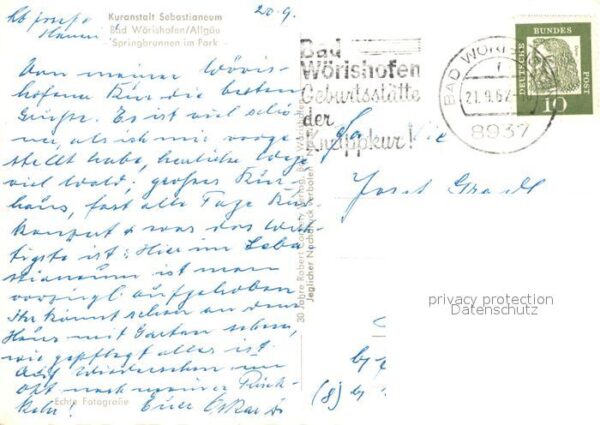 Lb Josef + 20.9.
Hanni!
Kuranstalt Sebastianeum
Bad Wörishofen/Allgäu
Springbrunnen im Park
Von meiner Wöris-
hofener Kur die besten
Grüße. Es ist viel schö-
ner, als ich mir vorge-
stellt habe, herrliche Wege
viel Wald, großes Kur-
haus, fast alle Tage Kur-
konzert + was das Wich-
tigste ist: Hier im Seba-
stianeum ist man
vorzügl. aufgehoben
Ihr könnt schon an dem
Haus mit Garten sehen,
wie gepflegt alles ist
Auf Wiedersehen
oft nach meiner Rück-
kehr! Euer Oskar
Echte Fotografie
30 Jahre Robert Verlag, Bad Wörishofen
Jeglicher Nachdruck verboten!
Bad
Wörishofen
Geburtsstätte
der
Kneippkur!
BAD WÖRIS
21.9.62
8937
DEUTSCHE BUNDESPOST
10
Familie
Josef Gradl
privacy protection
Datenschutz
(8)